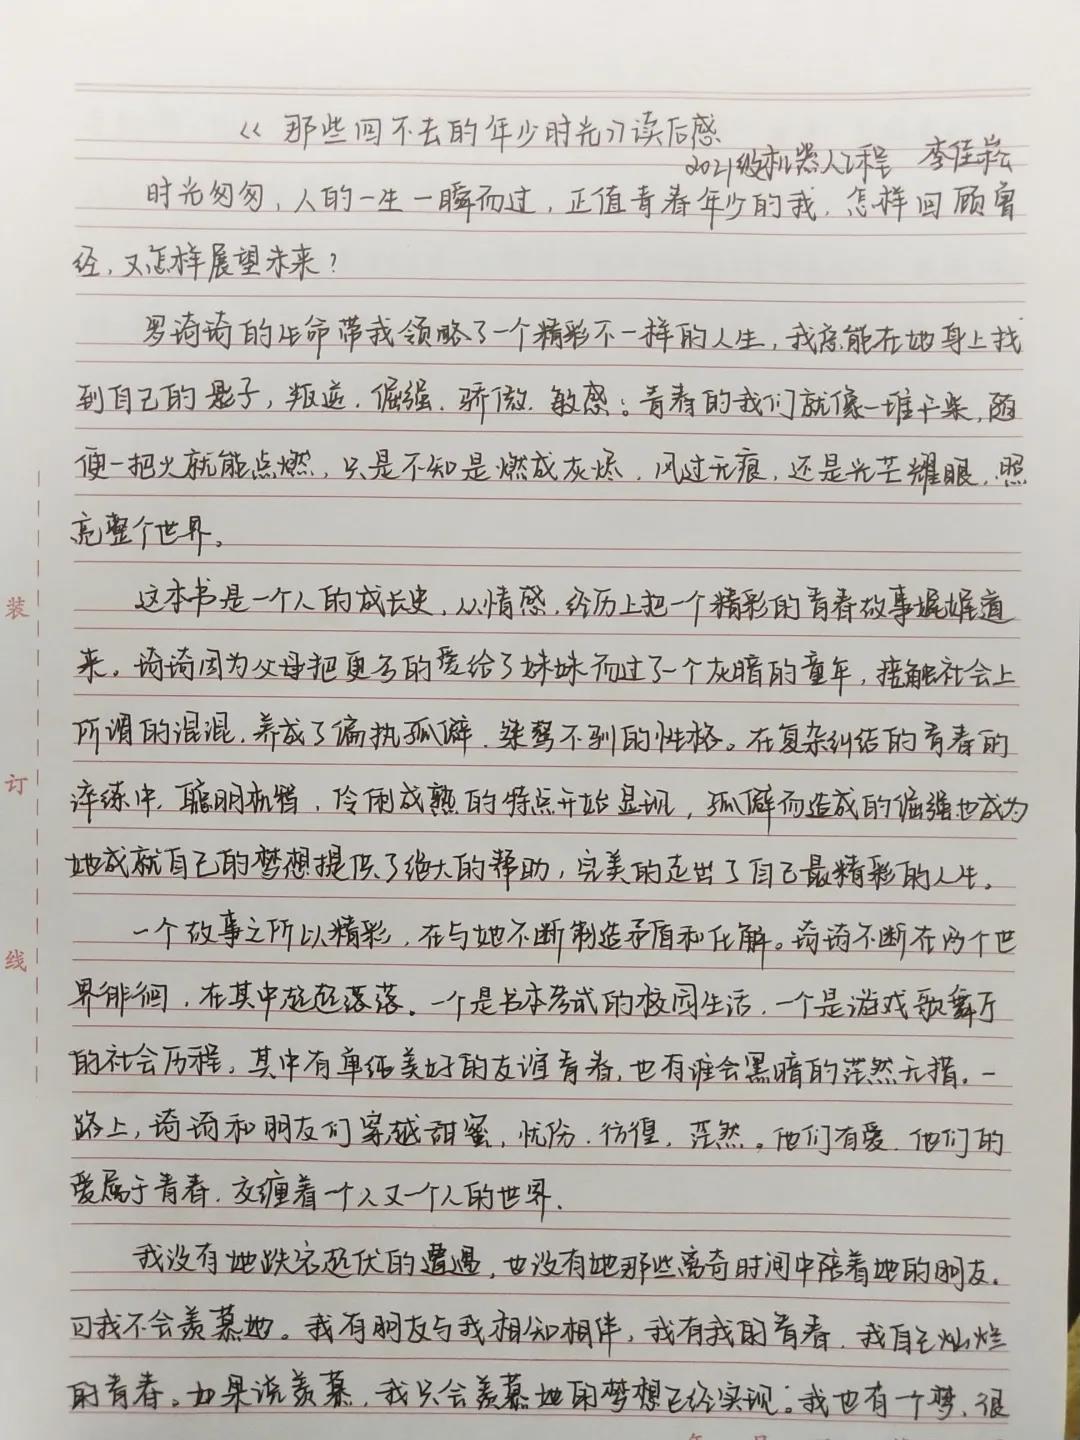 《那些回不去的年少时光》读后感
2021级机器人工程 李佳崧
时光匆匆，人的一生一瞬而过，正值青春年少的我，怎样回顾曾
经，又怎样展望未来？
罗琦琦的生命带我领略了一个精彩不一样的人生，我总能在她身上找
到自己的影子，叛逆、倔强、骄傲、敏感；青春的我们就像一堆干柴，随
便一把火就能点燃，只是不知是燃成灰烬，风过无痕，还是光芒耀眼，照
亮整个世界。
这本书是一个人的成长史，从情感，经历上把一个精彩的青春故事娓娓道
来。琦琦因为父母把更多的爱给了妹妹而过了一个灰暗的童年，接触社会上
所谓的混混，养成了偏执孤僻、桀骜不驯的性格。在复杂纠结的青春的
淬练中，聪明机智，伶俐成熟的特点开始显现，孤僻而造成的倔强也成为
她成就自己的梦想提供了绝大的帮助，完美的走出了自己最精彩的人生。
一个故事之所以精彩，在与她不断制造矛盾和化解。琦琦不断在两个世
界徘徊，在其中起起落落。一个是书本考试的校园生活，一个是游戏歌舞厅
的社会历程，其中有单纯美好的友谊青春，也有谁会黑暗的茫然无措。一
路上，琦琦和朋友们穿越甜蜜，忧伤，彷徨，茫然。他们有爱，他们的
爱属于青春，交缠着一个人又一个人的世界。
我没有她跌宕起伏的遭遇，也没有她那些离奇时间中陪着她的朋友。
可我不会羡慕她。我有朋友与我相知相伴，我有我的青春，我自己灿烂
的青春。如果说羡慕，我只会羡慕她的梦想已经实现；我也有一个梦，很
装
订
线